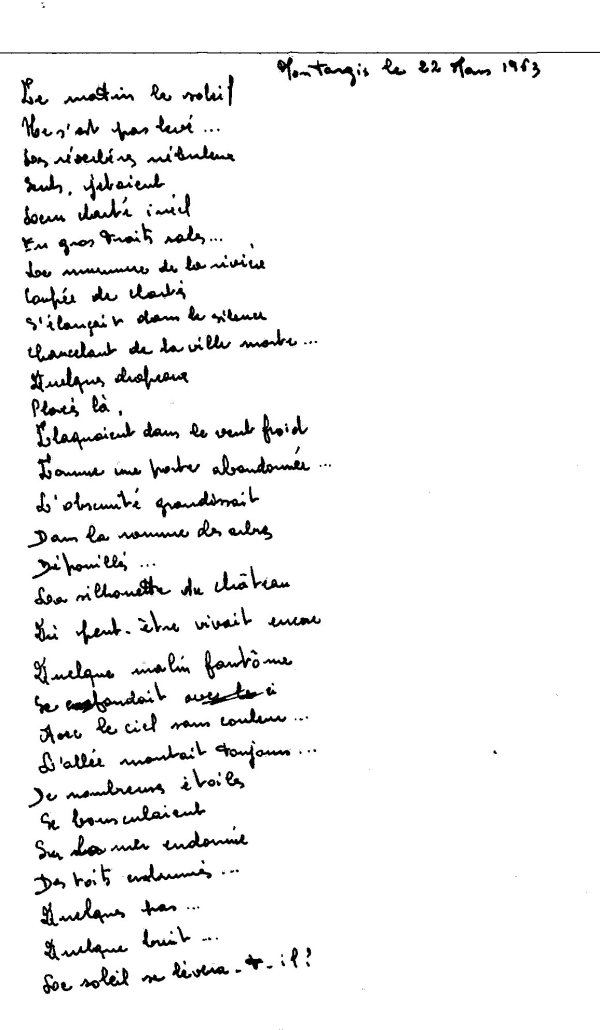 Montargis le 22 Mars 1963
Le matin le soleil
Ne s'est pas levé ...
Les réverbères nébuleux
Seuls, jetaient
Leur clarté
En gros traits sales...
Le murmure de la rivière
Coupée de clartés
S'élançait dans le silence
Chancelant de la ville morte ...
Quelques drapeaux
Placés là,
Claquaient dans le vent froid
Comme une porte abandonnée ...
L'obscurité grandissait
Dans la ramure des arbres
Dépouillés ...
La silhouette du château
Où peut-être vivait encore
Quelque malin fantôme
Se confondait
Avec le ciel sans couleur ...
L'allée montait toujours ...
De nombreuses étoiles
Se bousculaient
Sur la mer endormie
Des toits endormis ...
Quelques pas ...
Quelque bruit ...
Le soleil se lèvera-t-il?